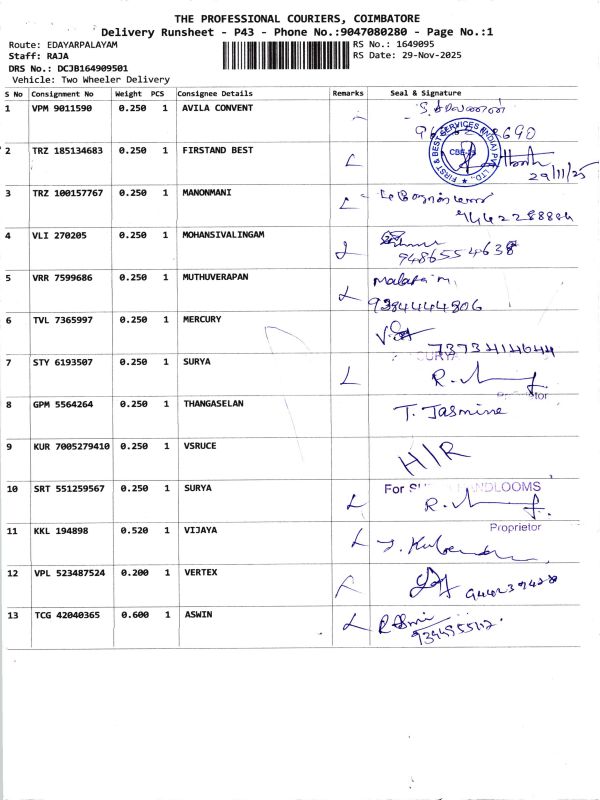 THE PROFESSIONAL COURIERS, COIMBATORE
Delivery Runsheet - P43 - Phone No.:9047080280 - Page No.:1
Route: EDAYARPALAYAM RS No.: 1649095
Staff: RAJA RS Date: 29-Nov-2025
DRS No.: DCJB164909501
Vehicle: Two Wheeler Delivery
S No Consignment No Weight PCS Consignee Details Remarks Seal & Signature
1 VPM 9011590 0.250 1 AVILA CONVENT
2 TRZ 185134683 0.250 1 FIRSTAND BEST
FIRST & BEST SERVICES (INDIA) PVT. LTD.,
29/11/25
3 TRZ 100157767 0.250 1 MANONMANI
4 VLI 270205 0.250 1 MOHANSIVALINGAM
9486554638
5 VRR 7599686 0.250 1 MUTHUVERAPAN
9384444806
6 TVL 7365997 0.250 1 MERCURY
7373414644
7 STY 6193507 0.250 1 SURYA
8 GPM 5564264 1 0.250 THANGASELAN T. Jasmine
9 KUR 7005279410 0.250 1 VSRUCE H/R
10 SRT 551259567 0.250 1 SURYA For HANDLOOMS
Proprietor
11 KKL 194898 0.520 1 VIJAYA
12 VPL 523487524 0.200 1 VERTEX
13 TCG 42040365 0.600 1 ASWIN